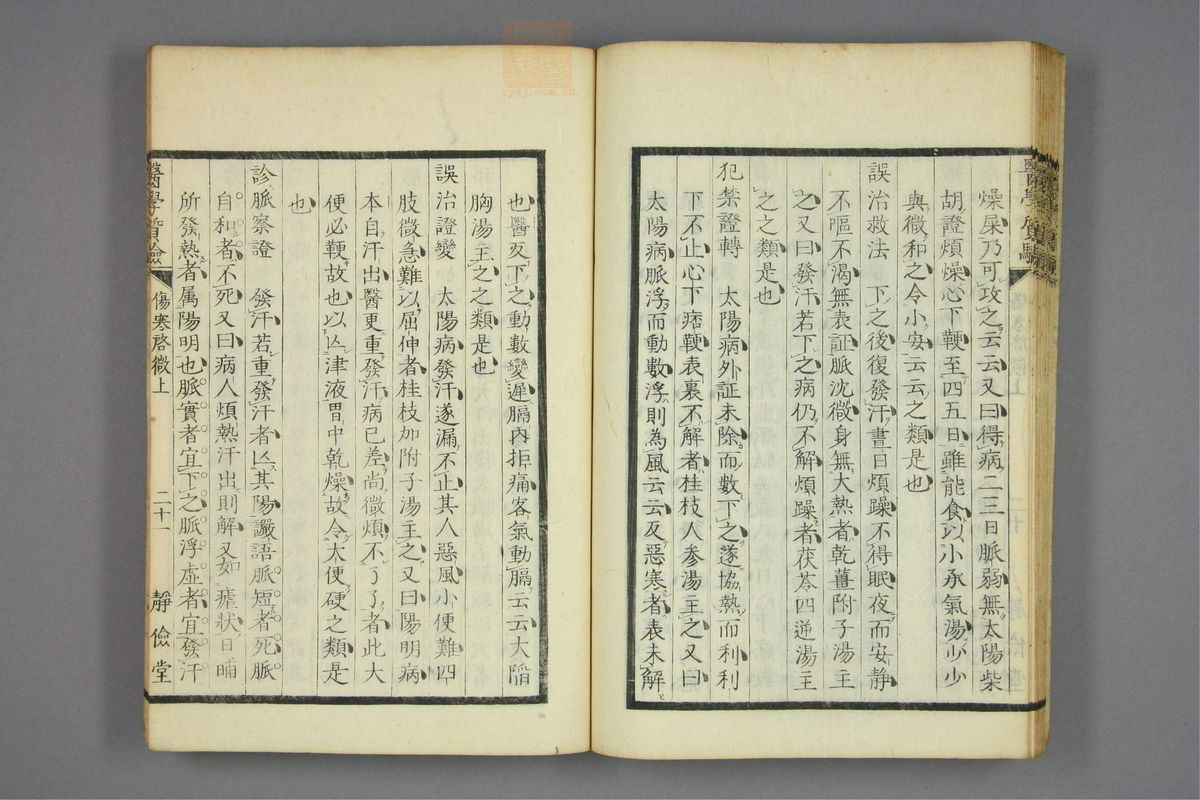 燥屎乃可攻之云云又曰得病二三日脈弱無太陽柴
胡證煩燥心下鞕至四五日雖能食以小承氣湯少少
與微和之令小安云云之類是也
誤治救法 下之後復發汗晝日煩躁不得眠夜而安靜
不嘔不渴無表証脈沈微身無大熱者乾薑附子湯主
之又曰發汗若下之病仍不解煩躁者茯苓四逆湯主
之之類是也
犯禁證轉 太陽病外証未除而數下之遂協熱而利利
下不止心下痞鞕表裏不解者桂枝人参湯主之又曰
太陽病脈浮而動數浮則為風云云反惡寒者表未解
也醫反下之動數變遲膈內拒痛客氣動膈云云大陷
胸湯主之之類是也
誤治證變 太陽病發汗遂漏不止其人惡風小便難四
肢微急難以屈伸者桂枝加附子湯主之又曰陽明病
本自汗出醫更重發汗病已差尚微煩不了了者此大
便必鞕故也以亾津液胃中乾燥故令大便硬之類是
也
診脈察證 發汗若重發汗者亾其陽讝語脈短者死脈
自和者不死又曰病人煩熱汗出則解又如瘧狀日晡
所發熱者属陽明也脈實者宜下之脈浮虛者宜發汗
傷寒啓微上
二十一
靜儉堂